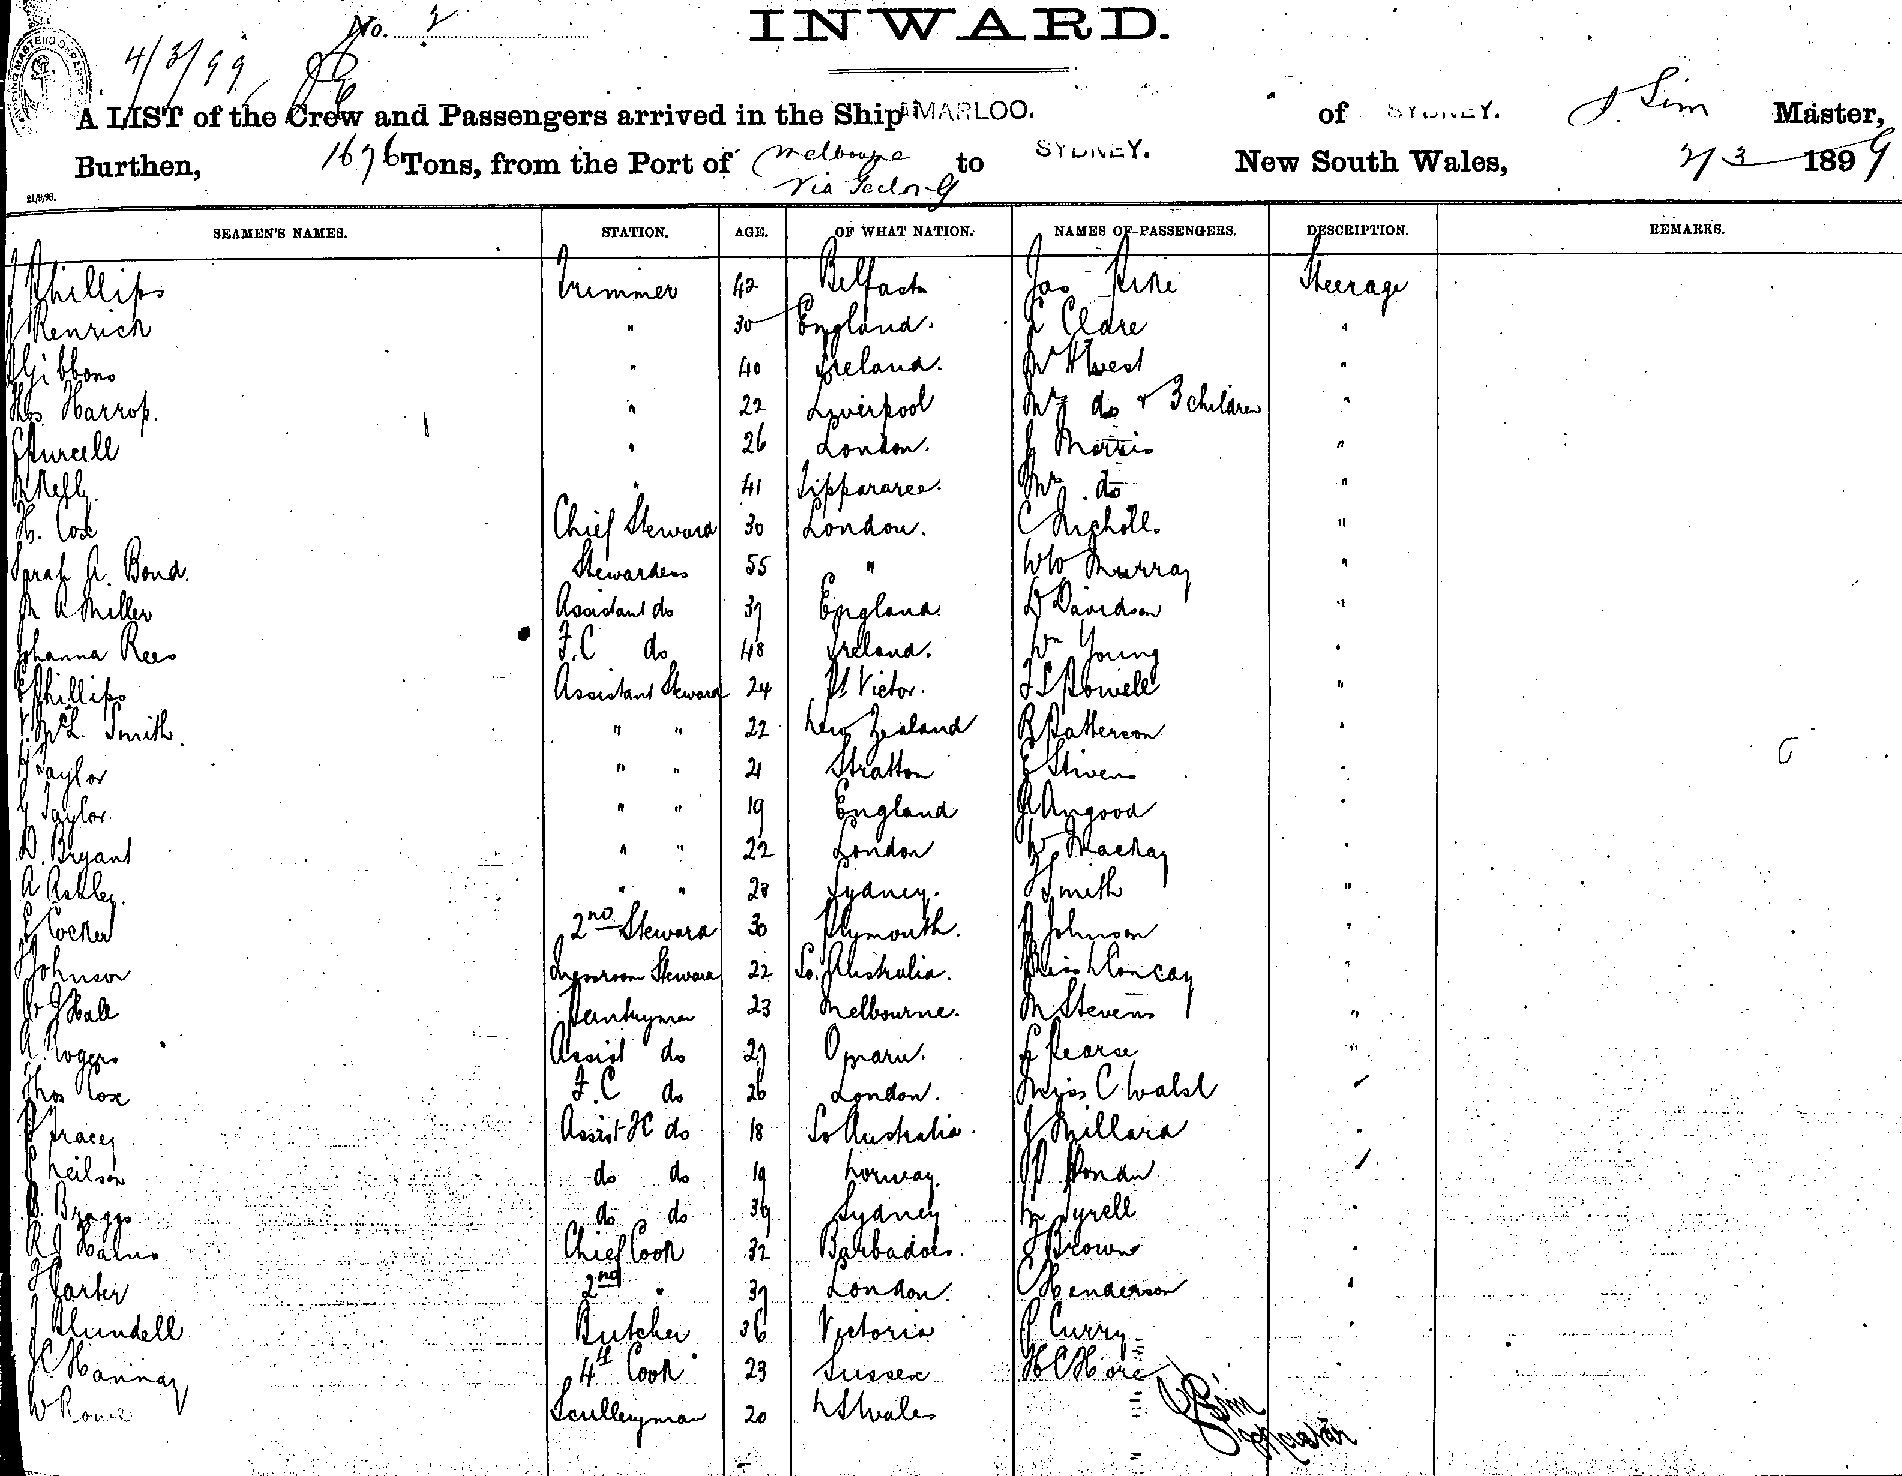 No. 2
INWARD.
4/3/99
A LIST of the Crew and Passengers arrived in the Ship MARLOO. of SYDNEY. J. Sim Master,
Burthen, 1676 Tons, from the Port of Melbourne to SYDNEY. New South Wales, 2/3 1899
Via
21/9/98.
SEAMEN'S NAMES. STATION. AGE. OF WHAT NATION. NAMES OF PASSENGERS. DESCRIPTION. REMARKS.
Phillips Trimmer 42 Belfast Jas Steerage
Kenrich " 30 England. Clare "
Gibbons " 40 Ireland. Mr West "
Thos Harrop. " 22 Liverpool Mrs do & 3 children "
Purcell " 26 London. J Morris "
" 41 Tippararee. Mrs do "
H. Cox Chief Steward 30 London. C Nicholls "
Sarah A. Bond. Stewardess 55 " WW Murray "
M A Miller Assistant do 37 England. D Davidson "
Johanna Rees F.C do 48 Ireland. Wm Young "
Phillips Assistant Steward 24 Pt Victor. Powell "
McL. Smith. " " 22 New Zealand R Patterson "
Taylor " " 21 Stratton Stivens "
Taylor. " " 19 England Angood "
D. Bryant " " 22 London Mackay "
A Ashley. " " 28 Sydney. Smith "
Cocker 2nd Steward 30 Plymouth. Johnson "
Johnson Steward 22 So. Australia. Miss "
Hall Pantryman 23 Melbourne. M Stevens "
A. Rogers Assist do 27 Omaru. Pearse "
Thos Cox F.C do 26 London. Miss C Walsh "
Tracey Assist FC do 18 So Australia. J Millard "
Neilson do do 19 Norway. Ronan "
B. Braggs do do 39 Sydney Tyrell "
Chief Cook 32 Barbadoes. Brown "
Carter 2nd " 37 London. C Henderson "
J Blundell Butcher 36 Victoria J Curry "
JC Hannay 4th Cook 23 Sussex HC Hore "
W Rowe Sculleryman 20 N S Wales
J Sim
Master